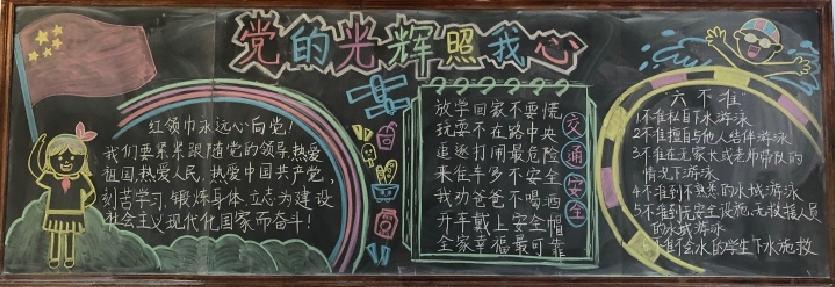 党的光辉照我心
红领巾永远心向党!
我们要紧紧跟随党的领导,热爱
祖国,热爱人民,热爱中国共产党,
刻苦学习,锻炼身体,立志为建设
社会主义现代化国家而奋斗!
放学回家不要慌
玩耍不在路中央
追逐打闹最危险
来往车多不安全
我劝爸爸不喝酒
开车戴上安全帽
全家幸福最可靠
交通安全
"六不准"
1不准私自下水游泳
2不准擅自与他人结伴游泳
3不准在无家长或老师带队的
情况下游泳
4不准到不熟悉的水域游泳
5不准到无安全设施、无救援人员
的水域游泳
6不准不会水的学生下水施救